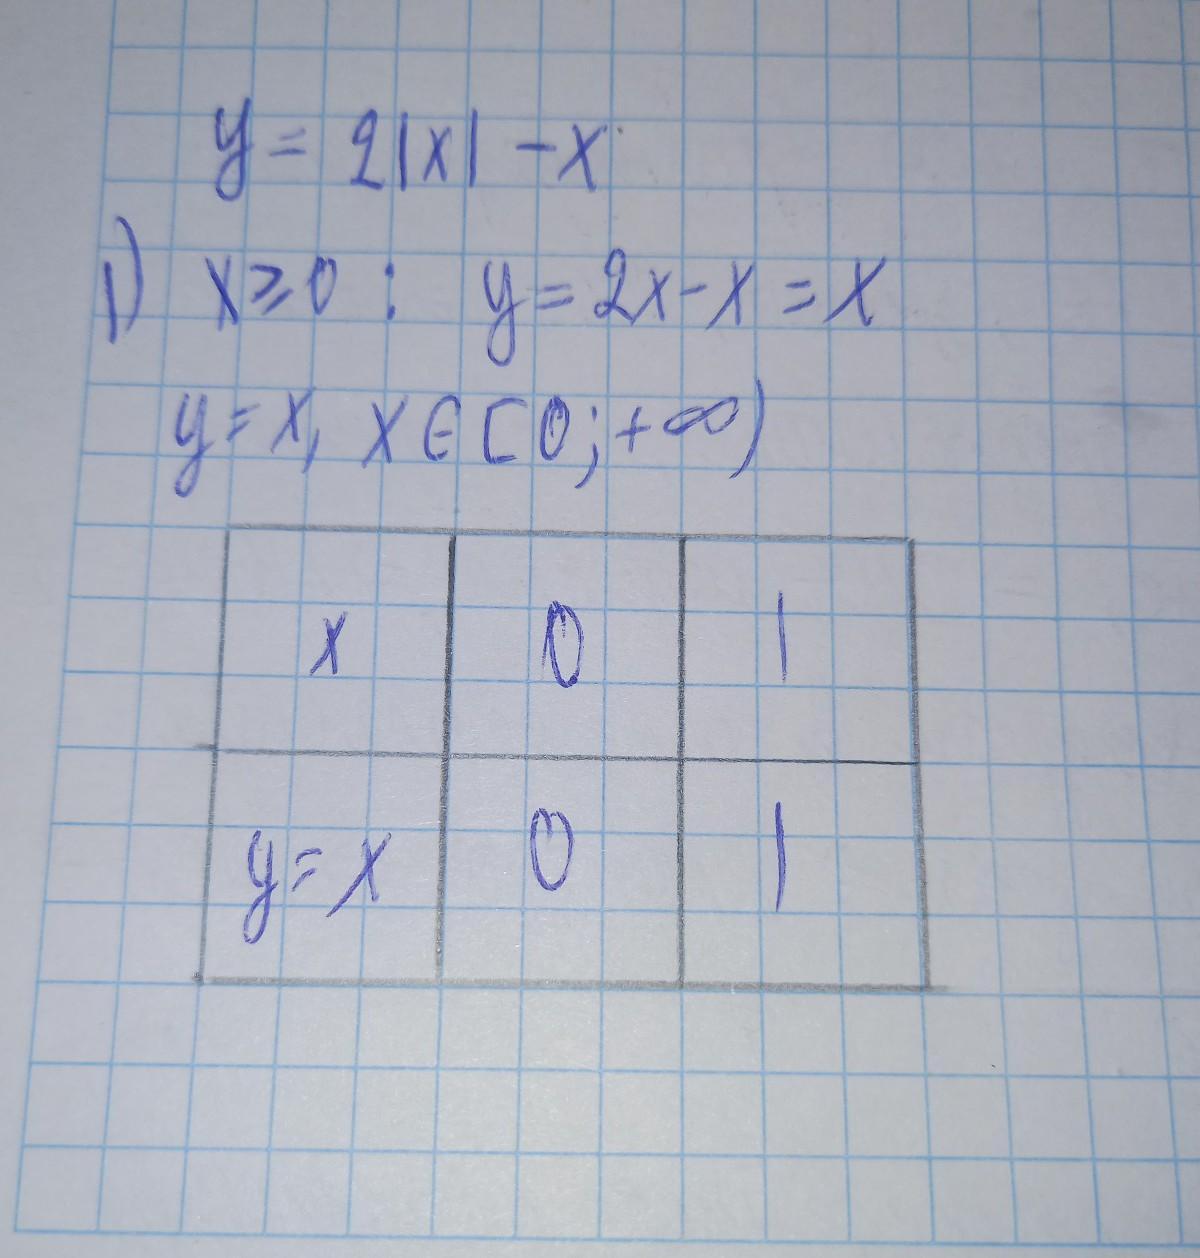 y = 2|x| - x
1) x ⩾ 0 : y = 2x - x = x
y = x, x ∈ [0; +∞)
x 0 1
y = x 0 1